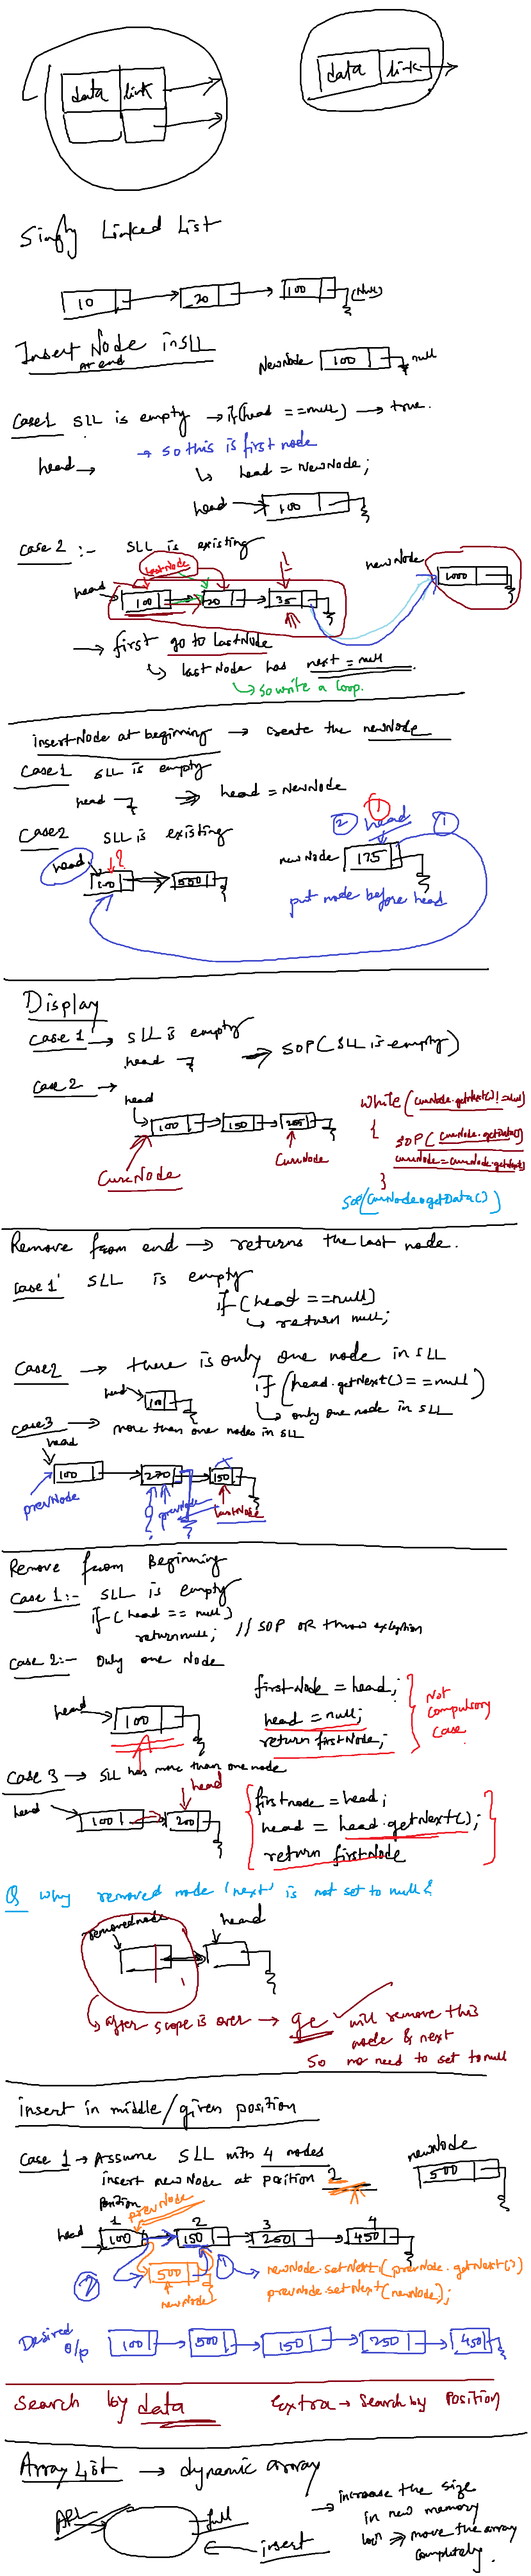 data link
data link
Singly Linked List
10 20 100 (Null)
Insert Node in SLL
At end
NewNode 100 null
Case 1 SLL is empty → if(head == null) → true.
→ so this is first node
head → ↳ head = NewNode;
head → 100
Case 2 :- SLL is existing
lastNode
newNode
head
100 20 35 1000
→ first go to lastNode
↳ lastNode has next = null
↳ so write a loop.
insertNode at beginning → create the newNode
Case 1 SLL is empty
head ⇒ head = NewNode
Case 2 SLL is existing
① ② head ①
head ?
100 500
newNode 175
put node before head
Display
Case 1 → SLL is empty
head → SOP(SLL is empty)
Case 2 →
head
100 150 255
CurrNode CurrNode
while(currNode.getNext() != null)
{
SOP(currNode.getData())
currNode = currNode.getNext()
}
SOP(currNode.getData())
Remove from end → returns the last node.
Case 1 SLL is empty
if(head == null)
↳ return null;
Case 2 → there is only one node in SLL
head 100 if(head.getNext() == null)
↳ only one node in SLL
Case 3 → more than one nodes in SLL
head
100 270 150
prevNode prevNode lastNode
?
Remove from Beginning
Case 1:- SLL is empty
if(head == null)
return null; // SOP OR throw exception
Case 2:- Only one Node
firstNode = head;
head = null;
return firstNode;
Not compulsory case
head 100
Case 3 → SLL has more than one node
head
head 100 200
firstnode = head;
head = head.getNext();
return firstNode
Q Why removed node 'next' is not set to null?
removednode head
↳ after scope is over → gc ✓ will remove this
node & next
so no need to set to null
insert in middle/given position
Case 1 → Assume SLL with 4 nodes
insert newNode at position 2
newNode
500
position prevNode
1 2 3 4
head 100 150 250 450
② 500 ① → newNode.setNext(prevNode.getNext())
newNode prevNode.setNext(newNode);
Desired o/p 100 500 150 250 450
Search by data Extra → Search by Position
Array List → dynamic array
full
insert
→ increase the size
in new memory
⇒ move the array
completely.